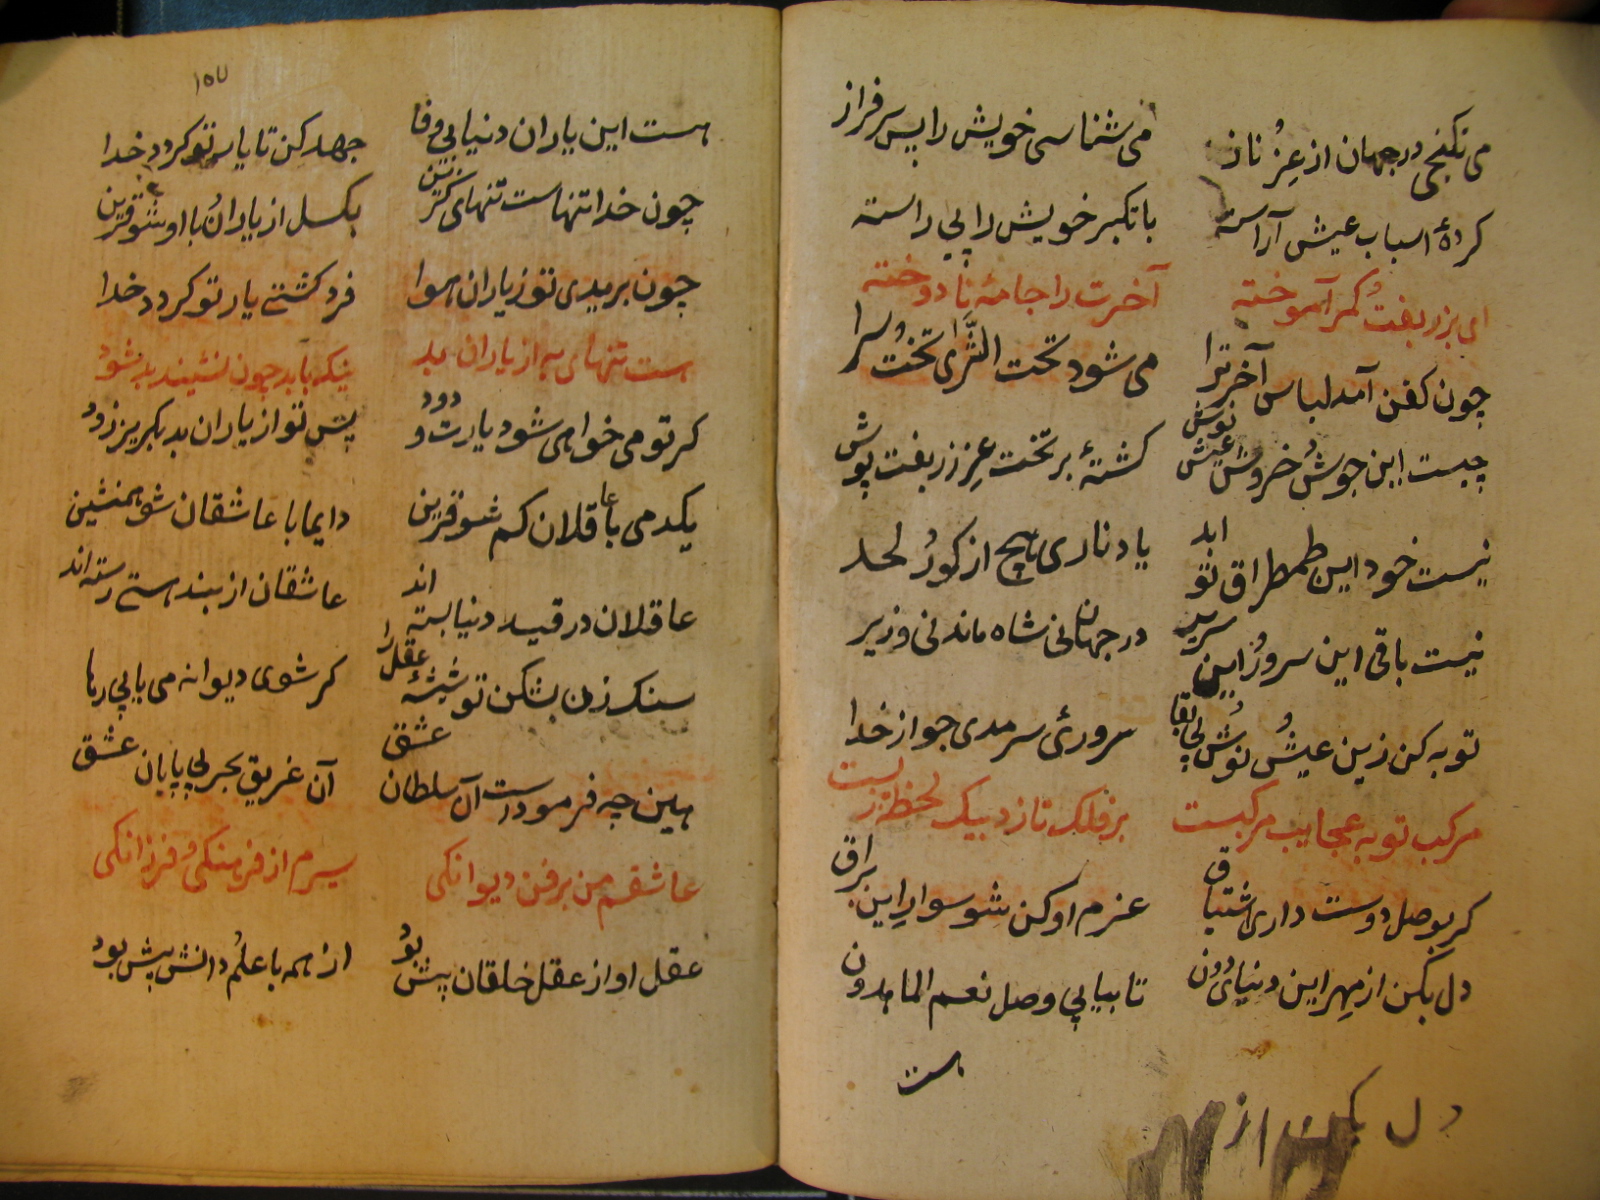 می نکنجی در جهان از عِزُ ناز می شناسی خویش را بس سرفراز
کردهٔ اسباب عیش آراسته با تکبر خویش را پی راسته
ای بزربفتُ کمر آموخته آخرت را جامهٔ نا دوخته
چون کفن آمد لباس آخر ترا می شود تحت الثَّری تختُ سرا
چیست این جوشُ خروش عیش نوش کشتهٔ بر تخت عِز زربفت پوش
نیست خود این طمطراق تو ابد یاد ناری هیچ از کورُ لحد
نیست باقی این سرورُ این سریر در جهان نی شاه ماند نی وزیر
توبه کن زین عیشُ نوُش بی بقا سروریٔ سرمدی جو از خدا
مرکب توبه عجایب مرکبست بر فلک تازد بیک لحظه ز پست
کر بوصل دوست داری اشتیاق عزم او کن شو سوارِ این براق
دل بکن از مِهر این دنیای دون تا بیابی وصل نعم الماهدون
هست
دل بکن از
١٥٧
هست این یاران دنیا بی وفا جهد کن تا یار تو کردد خدا
چون خدا تنهاست تنهای کزین بکسل از یارانُ با او شو قرین
چون بریدی تو ز یاران هوا فرد کشتے یار تو کردد خدا
هست تنهای به از یاران بد نیک با بد چون نشیند بد شود
کر تو می خواهی شود یارت ودود پس تو از یاران بد بکریز زود
یکدمی با عاقلان کم شو قرین دایما با عاشقان شو همنشین
عاقلان در قید دنیا بسته اند عاشقان از بند هستے رسته اند
سنک زن بشکن تو شیشهٔ عقل را کر شوی دیوانه می یابی رها
هین چه فرمود است آن سلطان عشق آن غریق بحر بی پایان عشق
عاشقم من بر فن دیوانکی سیرم از فرهنکیُ فرزانکی
عقل او از عقل خلقان پیش بوُد از همه با علمُ دانش بیش بود